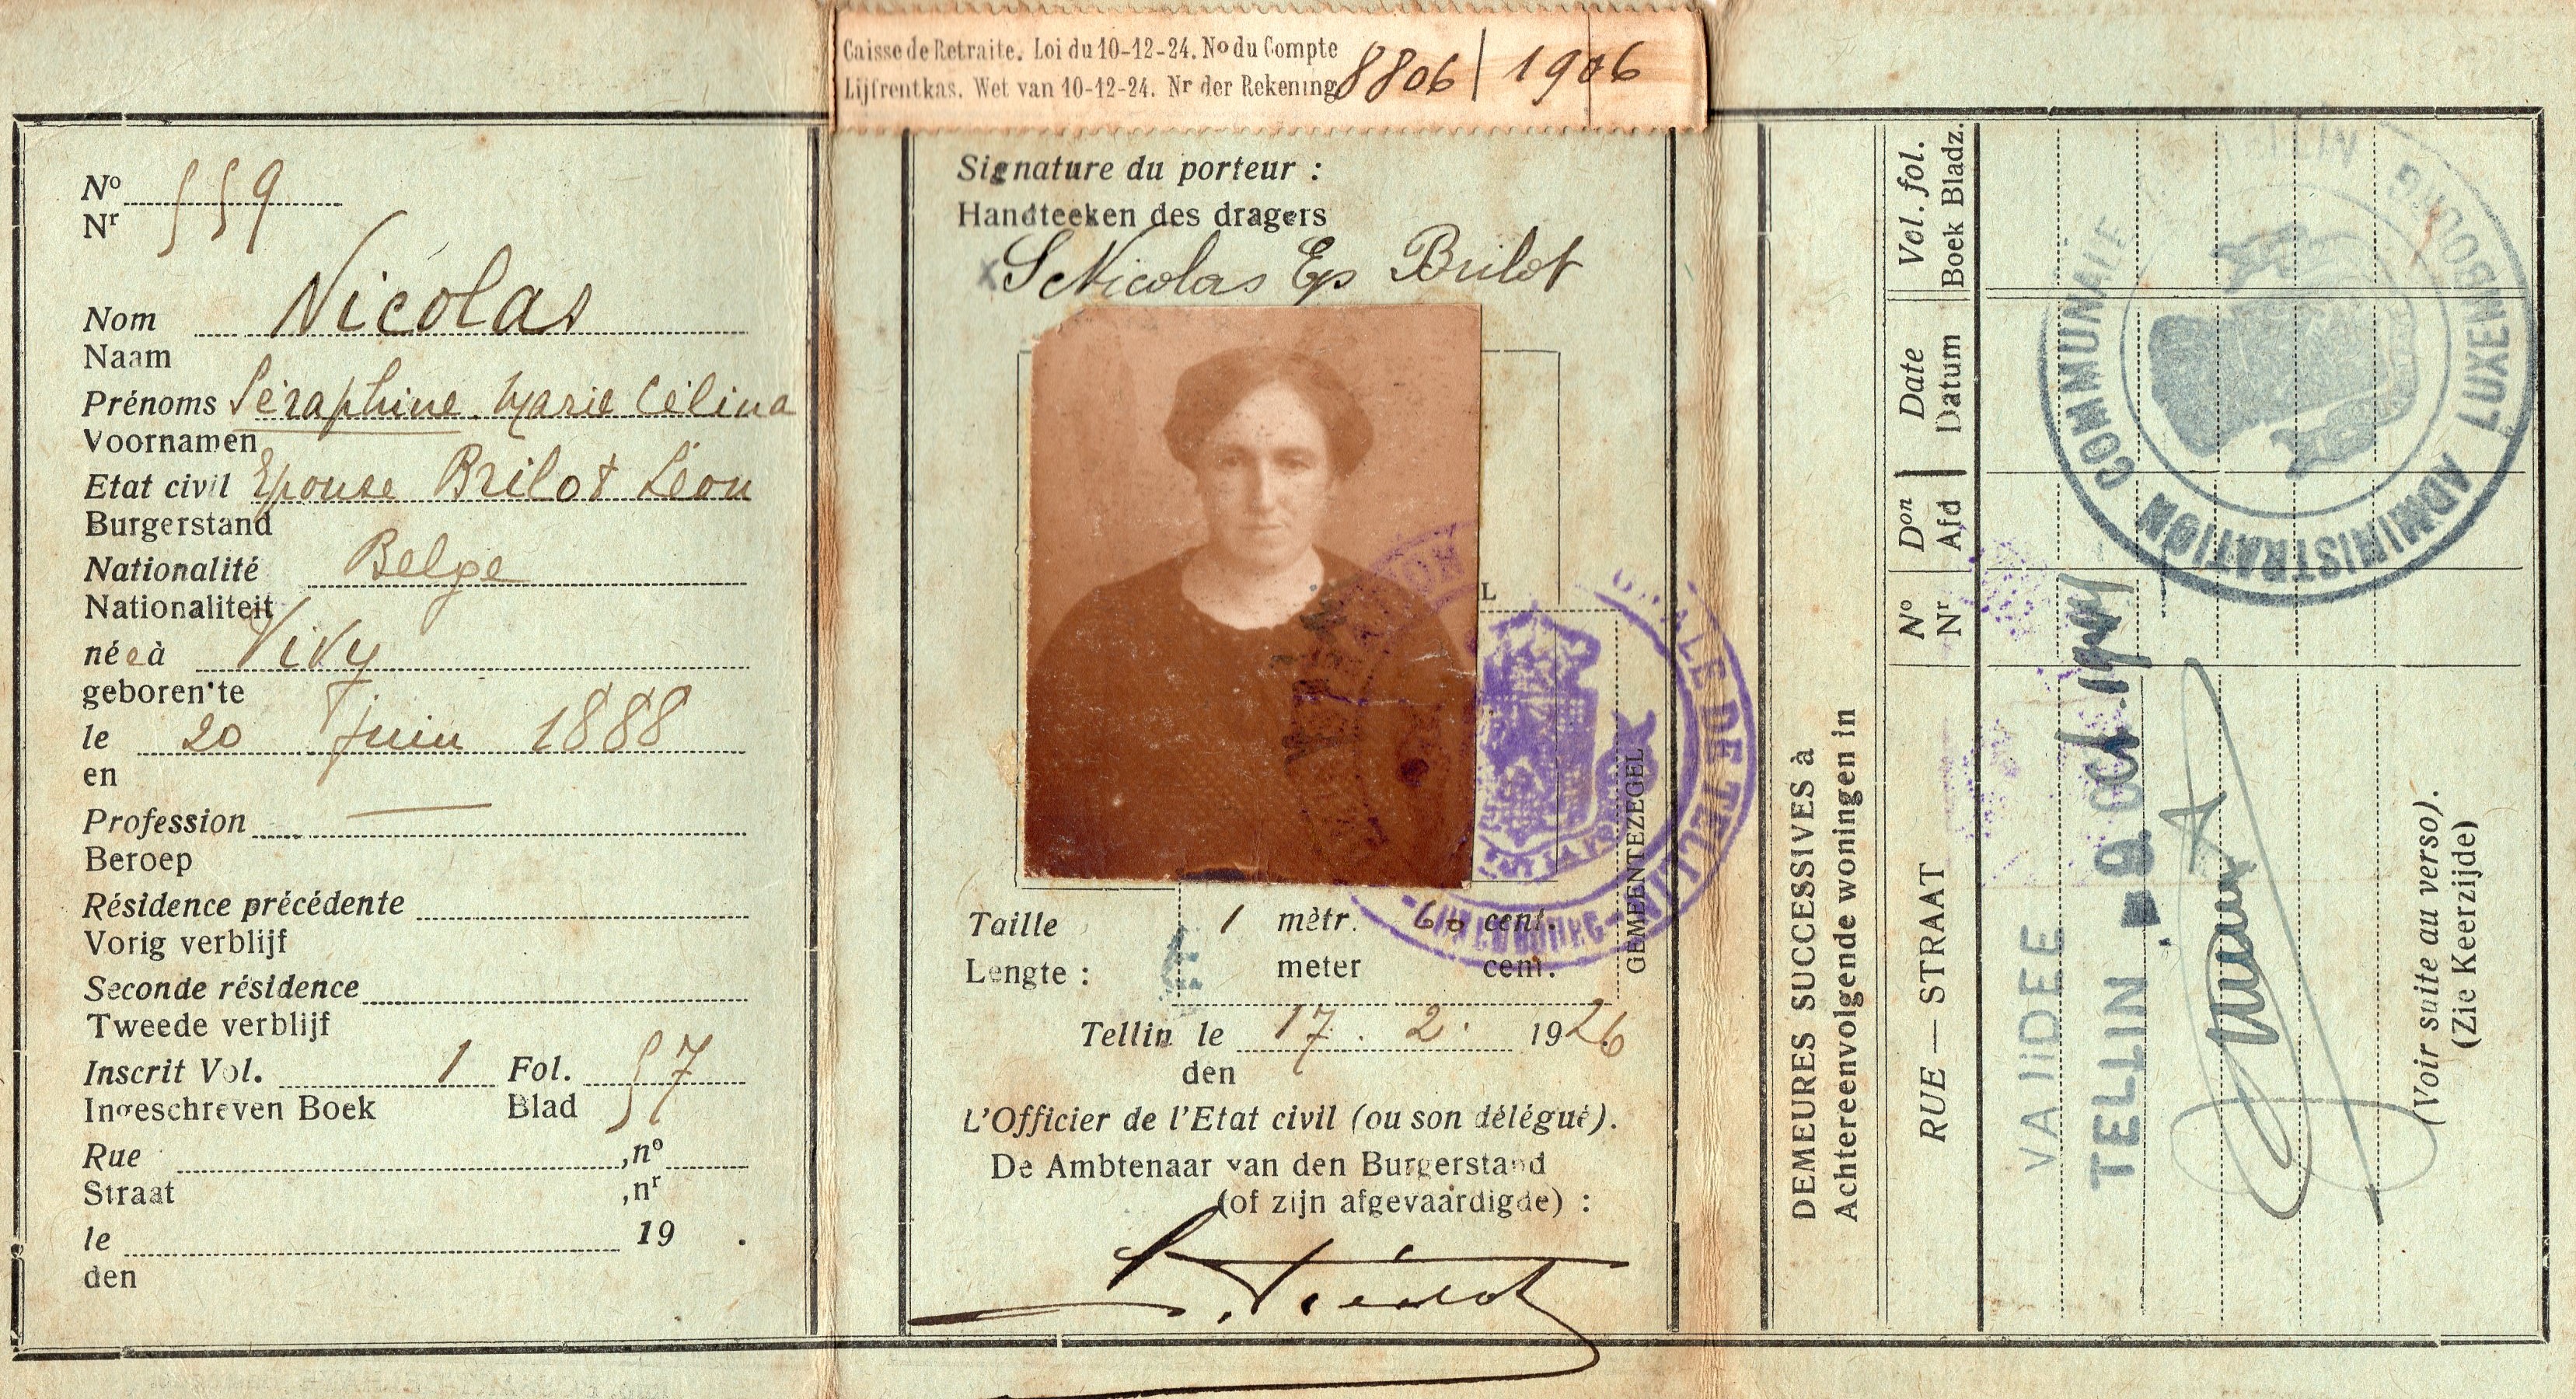 Caisse de Retraite. Loi du 10-12-24. No du Compte
Lijfrentkas. Wet van 10-12-24. Nr der Rekening 8806 / 1906
No 559
Nr
Nom Nicolas
Naam
Prénoms Séraphine Marie Célina
Voornamen
Etat civil Epouse Brilot Léon
Burgerstand
Nationalité Belge
Nationaliteit
née à Vivy
geboren te
le 20 Juin 1888
en
Profession —
Beroep
Résidence précédente
Vorig verblijf
Seconde résidence
Tweede verblijf
Inscrit Vol. 1 Fol. 57
Ingeschreven Boek Blad
Rue , no
Straat , nr
le 19 .
den
Signature du porteur :
Handteeken des dragers
S Nicolas Ep Brilot
L
GEMEENTEZEGEL
ALE DE TELLIN
Taille 1 mètr. 60 cent.
Lengte : meter cent.
Tellin le 17. 2. 1926
den
L'Officier de l'Etat civil (ou son délégué).
De Ambtenaar van den Burgerstand
(of zijn afgevaardigde) :
DEMEURES SUCCESSIVES à
Achtereenvolgende woningen in
RUE — STRAAT
No
Nr
Don
Afd
Date
Datum
Vol. fol.
Boek Bladz.
VALIDEE
TELLIN - 9. oct. 19
ADMINISTRATION COMMUNALE
LUXEMBOURG
(Voir suite au verso).
(Zie Keerzijde)